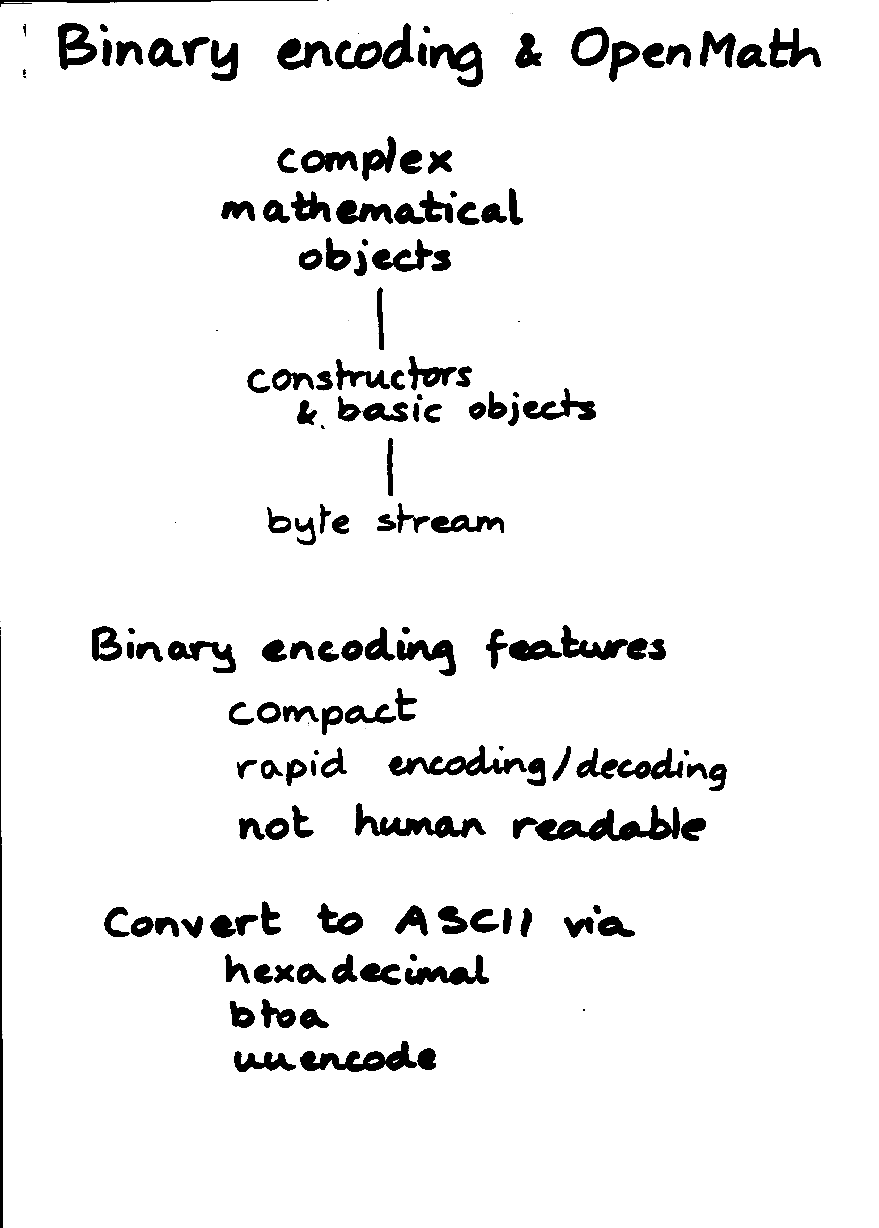 Binary encoding & OpenMath
complex
mathematical
objects
constructors
& basic objects
byte stream
Binary encoding features
compact
rapid encoding/decoding
not human readable
Convert to ASCII via
hexadecimal
btoa
uuencode